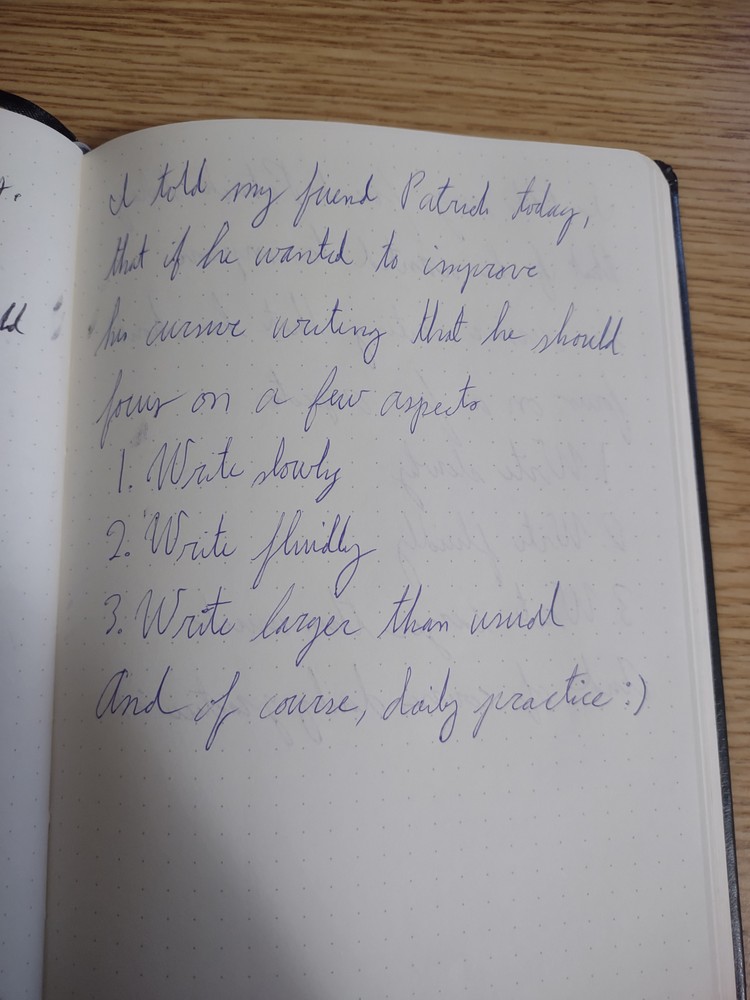 I told my friend Patrick today,
that if he wanted to improve
his cursive writing that he should
focus on a few aspects
1. Write slowly
2. Write fluidly
3. Write larger than usual
And of course, daily practice :)